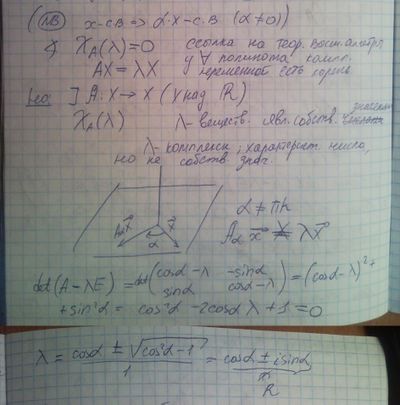 (NB) x-с.в ⇒ α·x-с.в (α≠0))
∮ χ_A(λ)=0 ссылка на теор. высш. алгебр.
AX=λX у ∀ полинома компл. переменной есть корень
Но: ] A: X→X (X над ℝ)
χ_A(λ) λ-веществ. явл. собств. значением
λ-комплексн; характерист. число,
но не собств. знач.
α≠πk
A_α x⃗ ≠ λx⃗
A_α x⃗ x⃗
α
det(A-λE) = det(cosα-λ -sinα
sinα cosα-λ) = (cosα-λ)²+
+sin²α = cos²α -2cosα λ +1=0
λ = cosα ± √(cos²α-1) / 1 = cosα ± i sinα
∉
ℝ